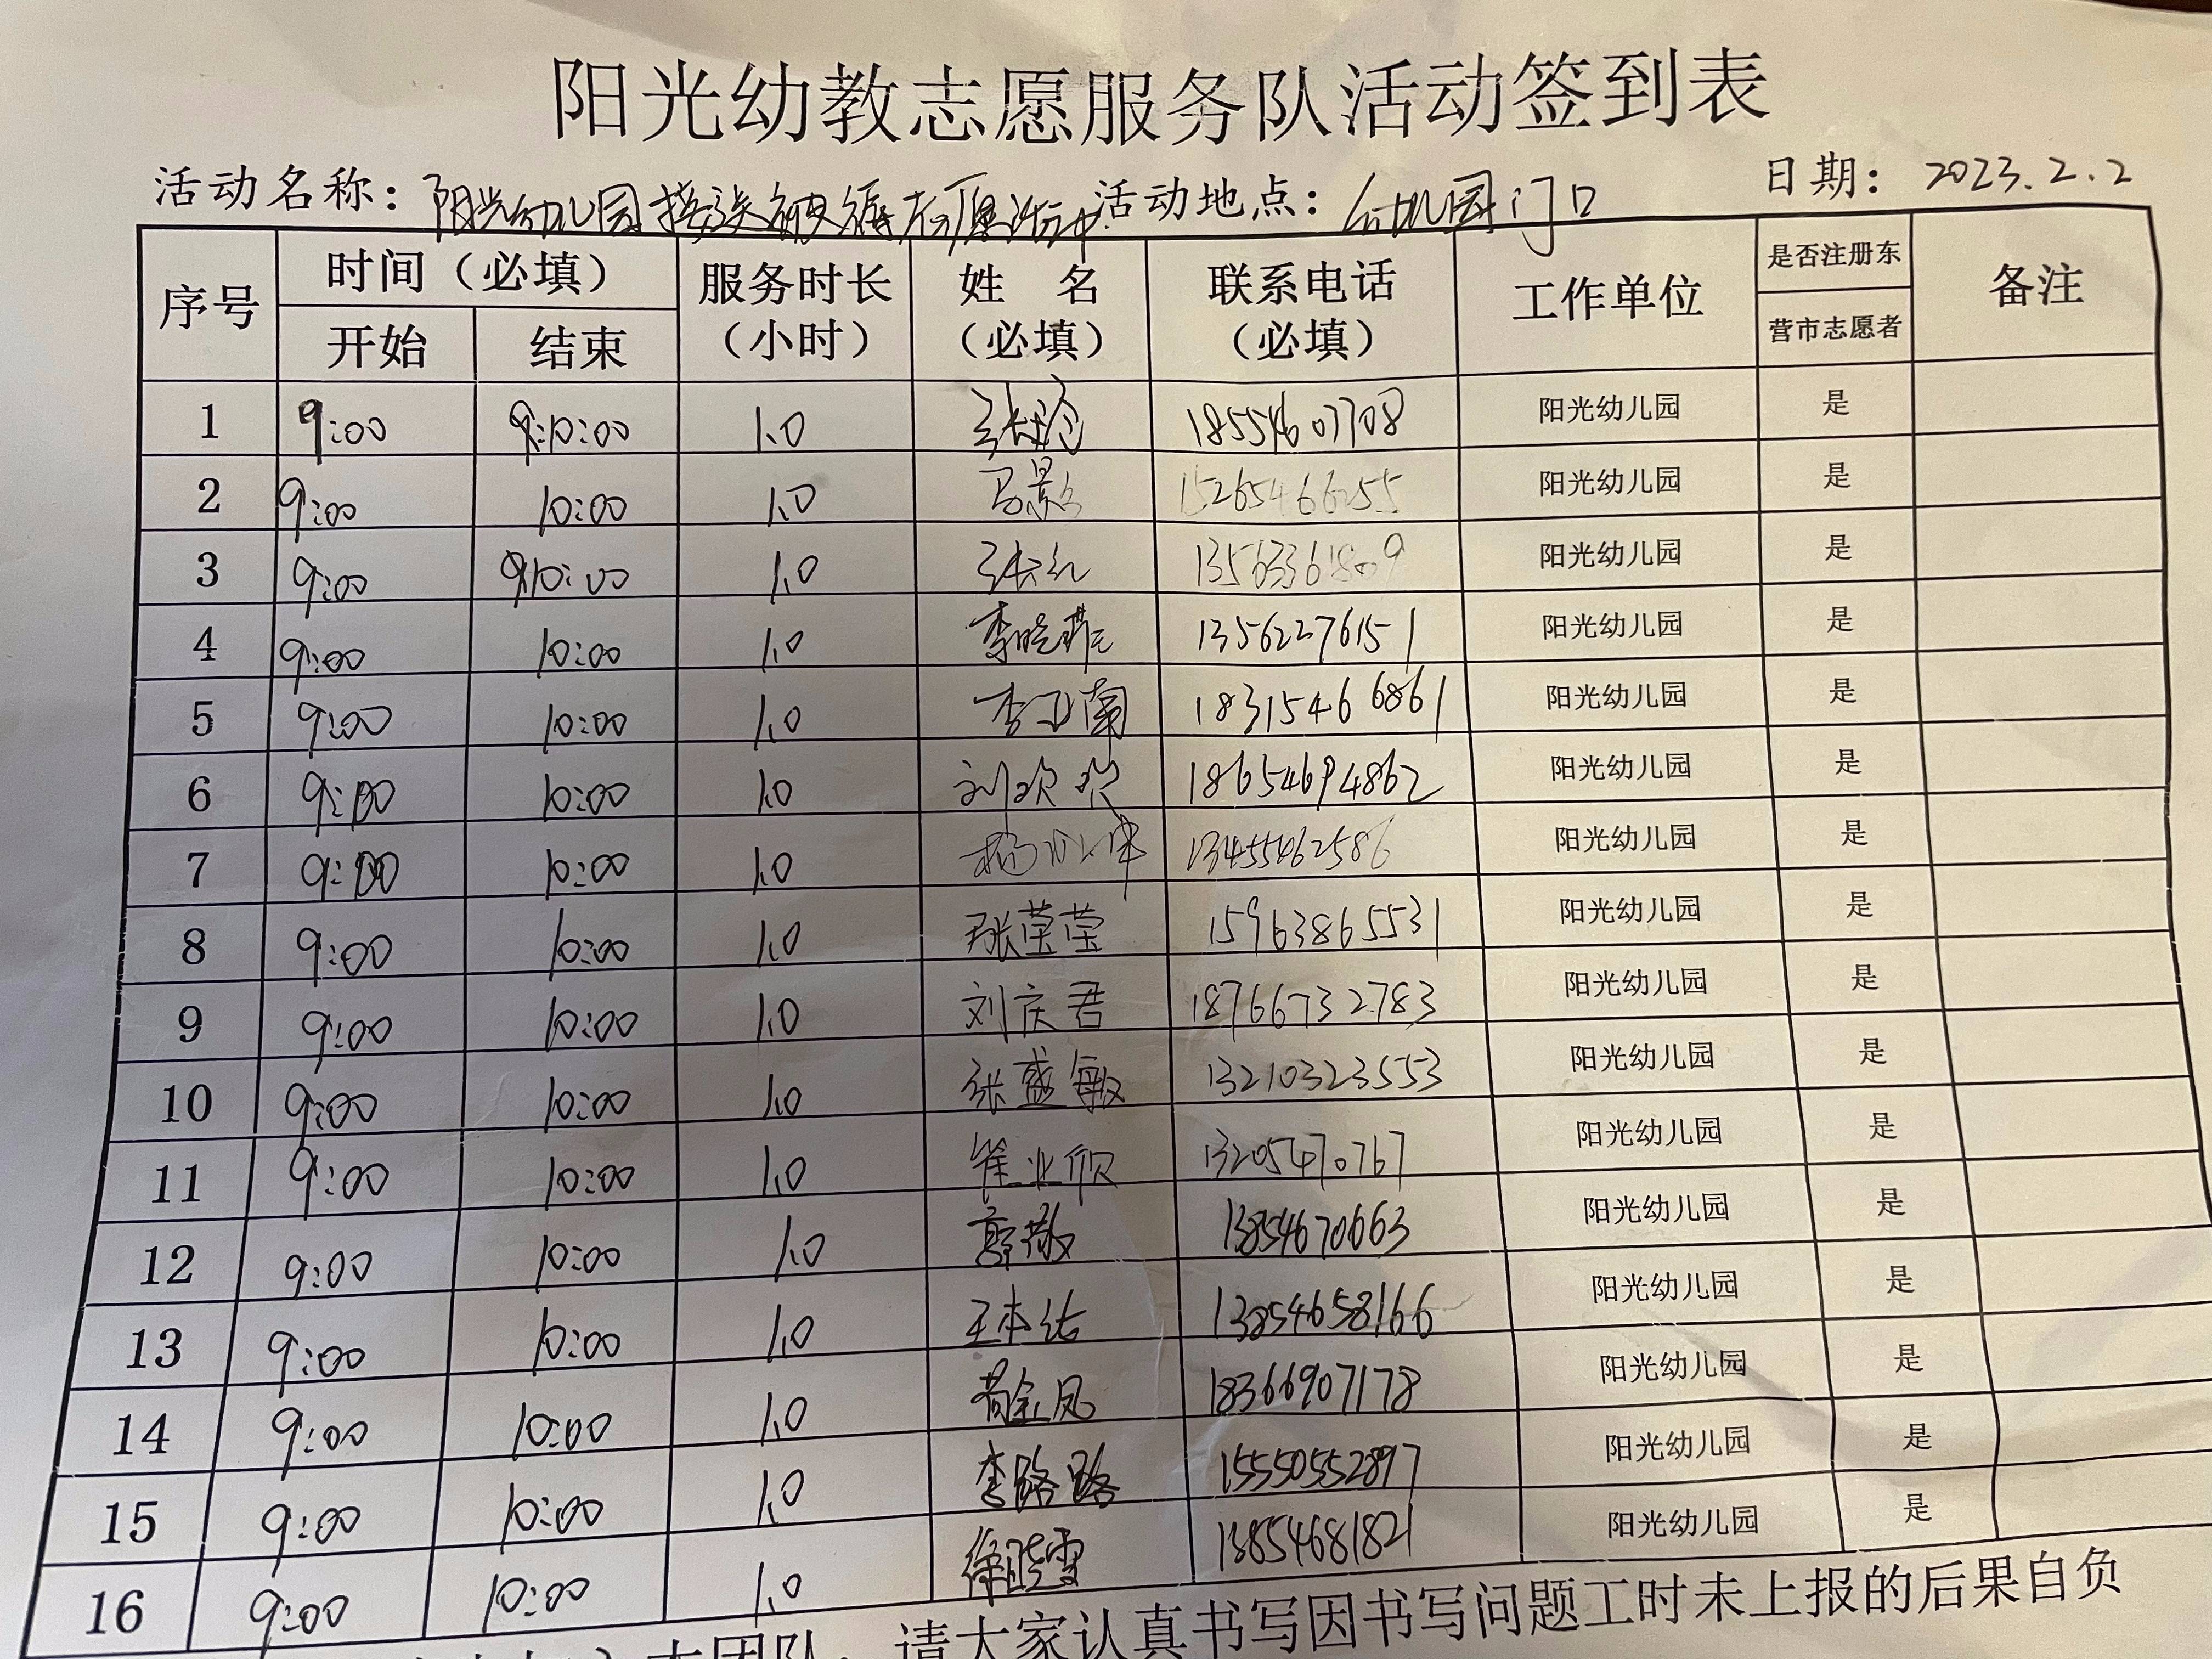 阳光幼教志愿服务队活动签到表
活动名称：阳光幼儿园接送 志愿活动 活动地点：幼儿园门口 日期：2023.2.2
序号 时间（必填） 服务时长（小时） 姓 名（必填） 联系电话（必填） 工作单位 是否注册东营市志愿者 备注
开始 结束
1 9:00 10:00 1.0 18554607708 阳光幼儿园 是
2 9:00 10:00 1.0 15265466255 阳光幼儿园 是
3 9:00 10:00 1.0 张红 13563361809 阳光幼儿园 是
4 9:00 10:00 1.0 李晓菲 13562276151 阳光幼儿园 是
5 9:00 10:00 1.0 李亚南 18315466861 阳光幼儿园 是
6 9:00 10:00 1.0 刘欢欢 18654694862 阳光幼儿园 是
7 9:00 10:00 1.0 13455462586 阳光幼儿园 是
8 9:00 10:00 1.0 张莹莹 15963865531 阳光幼儿园 是
9 9:00 10:00 1.0 刘庆君 18766732783 阳光幼儿园 是
10 9:00 10:00 1.0 张盛敏 13210323553 阳光幼儿园 是
11 9:00 10:00 1.0 崔业欣 13205470767 阳光幼儿园 是
12 9:00 10:00 1.0 13854670663 阳光幼儿园 是
13 9:00 10:00 1.0 王本佑 13854658166 阳光幼儿园 是
14 9:00 10:00 1.0 苟金凤 18366907178 阳光幼儿园 是
15 9:00 10:00 1.0 李路路 15550552897 阳光幼儿园 是
16 9:00 10:00 1.0 徐晓雪 13854681821 阳光幼儿园 是
本团队，请大家认真书写因书写问题工时未上报的后果自负